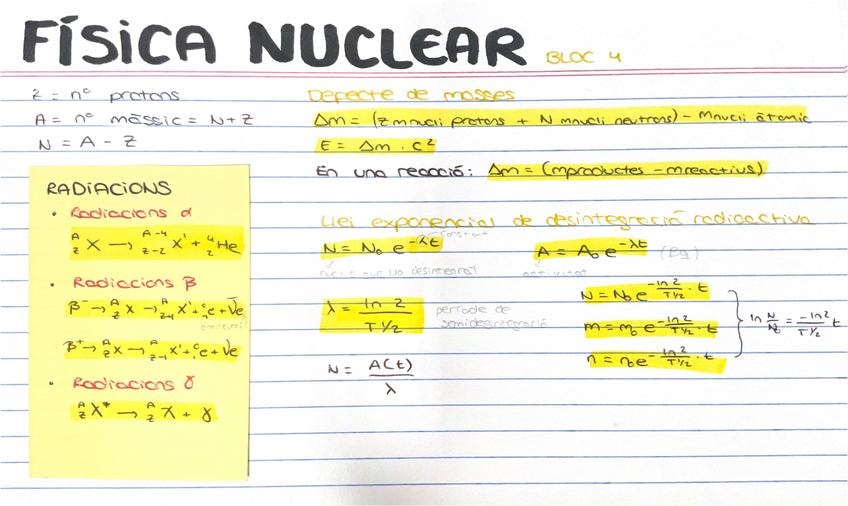 FÍSICA NUCLEAR BLOC 4
Z = nº protons
A = nº màssic = N + Z
N = A - Z
RADIACIONS
• Radiacions α
ᴬ_Z X → ᴬ⁻⁴_Z-2 X' + ⁴₂He
• Radiacions β
β⁻ → ᴬ_Z X →
β⁺ → ᴬ_Z X → ᴬ_Z-1 X'
• Radiacions γ
ᴬ_Z X* → ᴬ_Z X + γ
Defecte de masses
Δm = (Z mnucli protons + N mnucli neutrons) - Mnucli atòmic
E = Δm · c²
En una reacció: Δm = (mproductes - mreactius)
Llei exponencial de desintegració radioactiva
constant
N = N₀ e^-λt
A = A₀ e^-λt (Bq)
nuclis que no desintegrat
activitat
λ = ln 2 / T1/2
període de semidesintegració
N = A(t) / λ
N = N₀ e^(-ln 2 / T1/2 · t)
m = m₀ e^(-ln 2 / T1/2 · t)
n = n₀ e^(-ln 2 / T1/2 · t)
ln N/N₀ = -ln 2 / T1/2 t